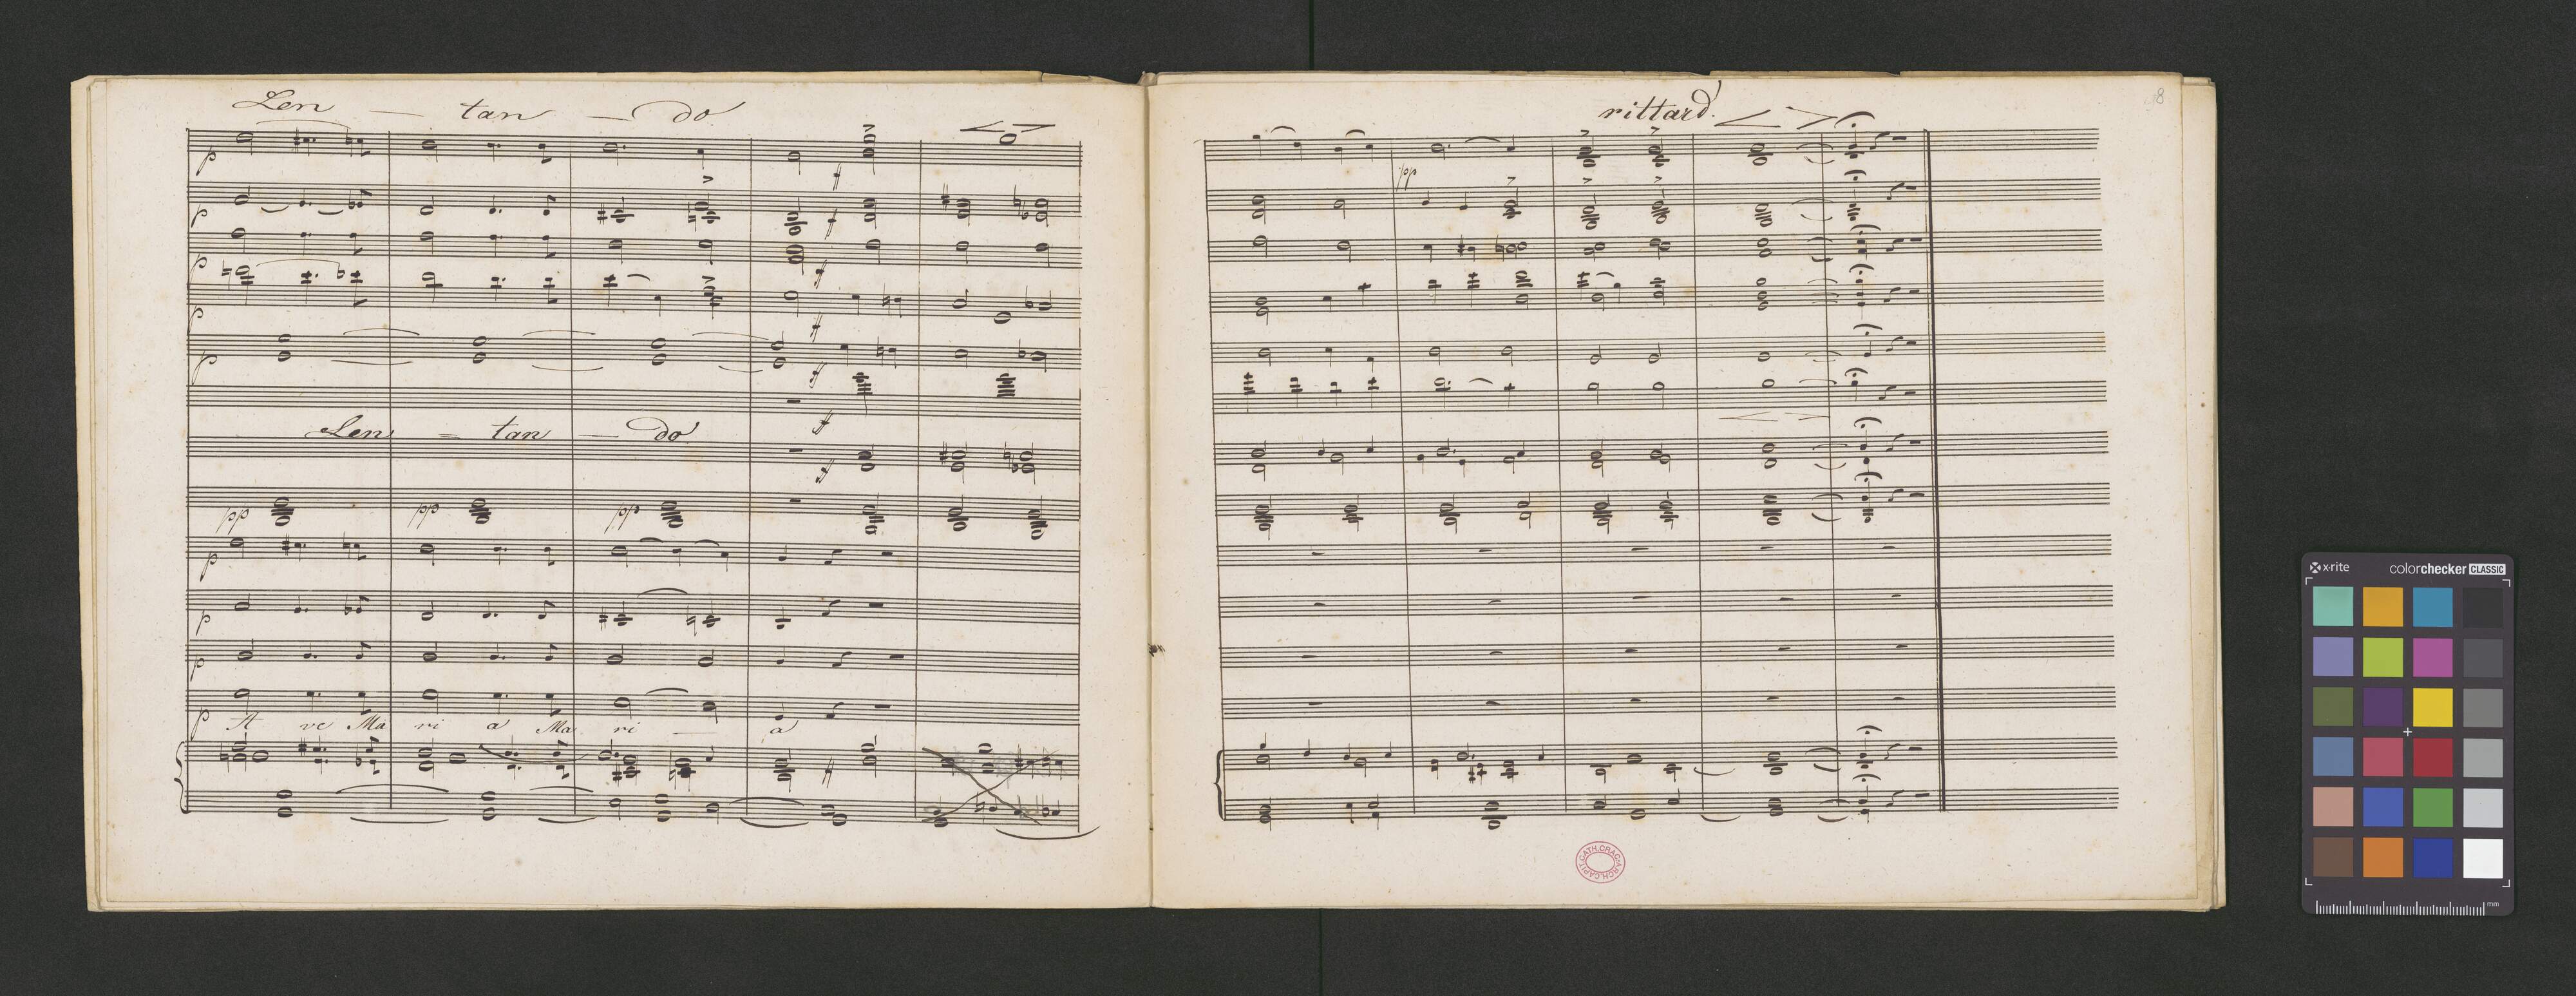 Len — tan — do
p
f
p
f
p
f
p
f
p
f
f
Len = tan — do
f
pp pp pp
p
p
p
p
A ve Ma ri a Ma ri — a
f
8
rittard.
pp
CAPIT.CATH.CRAC.ARCH.
x-rite colorchecker CLASSIC
mm